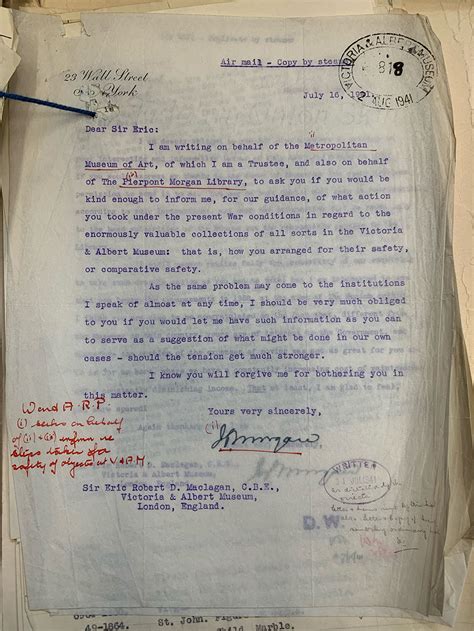 Air mail - Copy by steamer
VICTORIA & ALBERT MUSEUM
818
2 AUG 1941
23 Wall Street
New York
July 16, 1941.
Dear Sir Eric:
I am writing on behalf of the Metropolitan
Museum of Art, of which I am a Trustee, and also on behalf
of The Pierpont Morgan Library, to ask you if you would be
kind enough to inform me, for our guidance, of what action
you took under the present War conditions in regard to the
enormously valuable collections of all sorts in the Victoria
& Albert Museum: that is, how you arranged for their safety,
or comparative safety.
As the same problem may come to the institutions
I speak of almost at any time, I should be very much obliged
to you if you would let me have such information as you can
to serve as a suggestion of what might be done in our own
cases - should the tension get much stronger.
I know you will forgive me for bothering you in
this matter.
Yours very sincerely,
(i)
J P Morgan
W and A.R.P
(i) writes on behalf
of (ii) + (iii) inform re
steps taken for
safety of objects at V & A M.
Sir Eric Robert D. Maclagan, C.B.E.,
Victoria & Albert Museum,
London, England.
WRITTEN
JUL 1941
D.W.
49-1864. St. John. Figure
Marble.